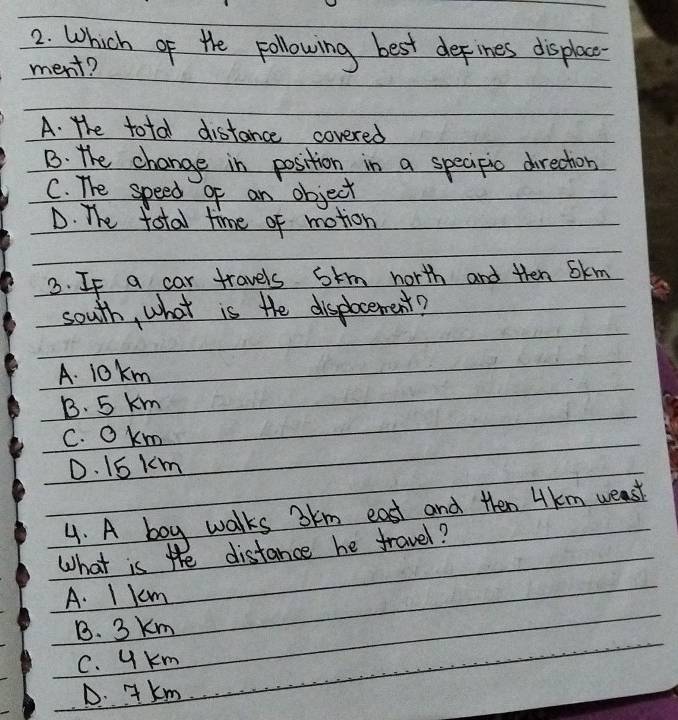 2. Which of the following best defines displace-
ment?
A. The total distance covered
B. The change in position in a specific direction
C. The speed of an object
D. The total time of motion
3. If a car travels 5km north and then 5km
south, what is the displacement?
A. 10 km
B. 5 km
C. 0 km
D. 15 km
4. A boy walks 3km east and then 4km weast
What is the distance he travel?
A. 1 km
B. 3 km
C. 4 km
D. 7 km